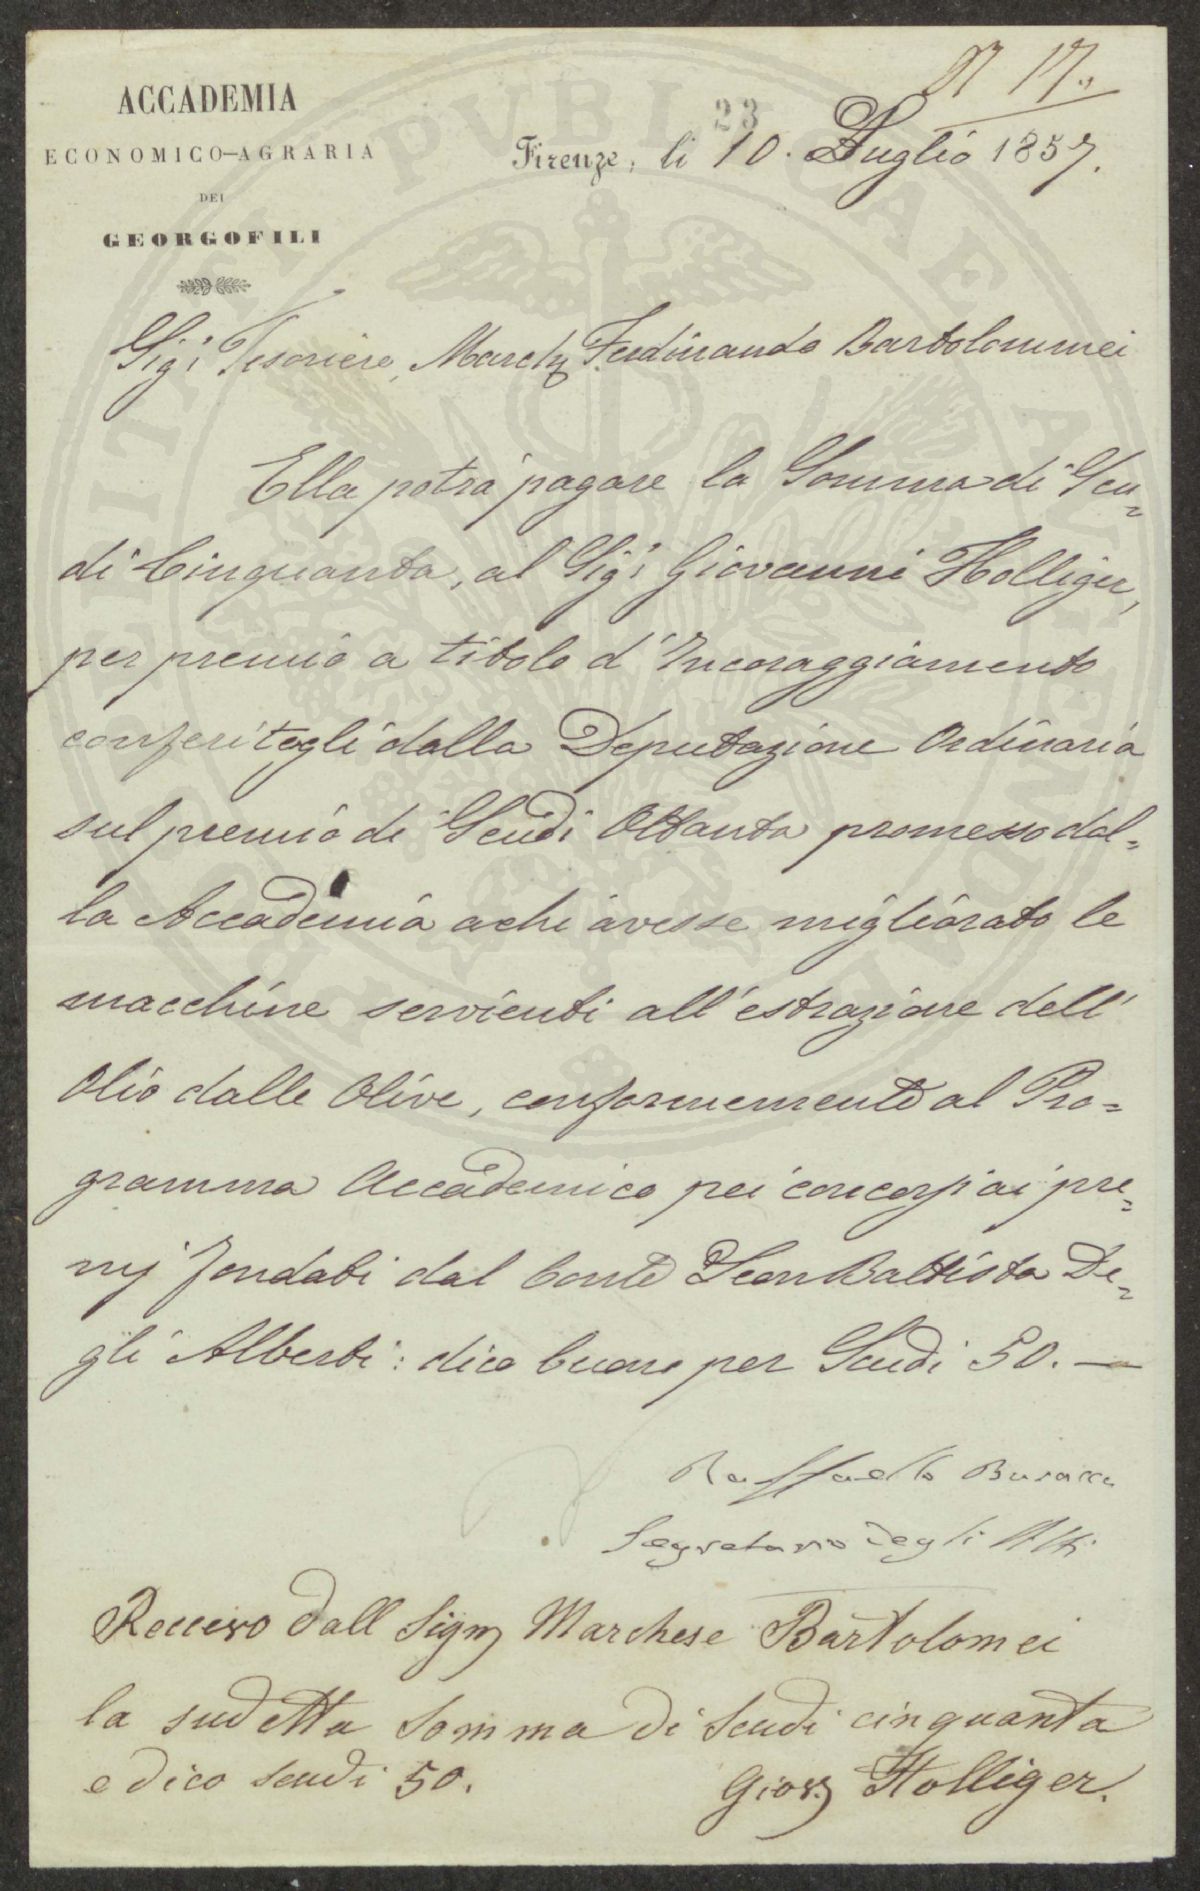 N 17.
ACCADEMIA
ECONOMICO-AGRARIA
DEI
GEORGOFILI
23
Firenze, li 10. Luglio 1857.
Sigr Tesoriere, March Ferdinando Bartolommei
Ella potrà pagare la Somma di Scu=
di Cinquanta, al Sigr Giovanni Holliger,
per premio a titolo d'Incoraggiamento
conferitogli dalla Deputazione Ordinaria
sul premio di Scudi Ottanta promesso dal=
la Accademia a chi avesse migliorato le
macchine servienti all'estrazione dell'
Olio dalle Olive, conformemente al Pro=
gramma Accademico pei concorsi ai pre=
mj fondati dal Conte Leon Battista De=
gli Alberti: dico buono per Scudi 50. —
Raffaello Busacca
Segretario degli Atti
Recevo dall Sign Marchese Bartolomei
la sudetta Somma di Scudi cinquanta
e dico scudi 50.
Giov Holliger.
PUBLICAE AVCTENDAE PROSPERITATI